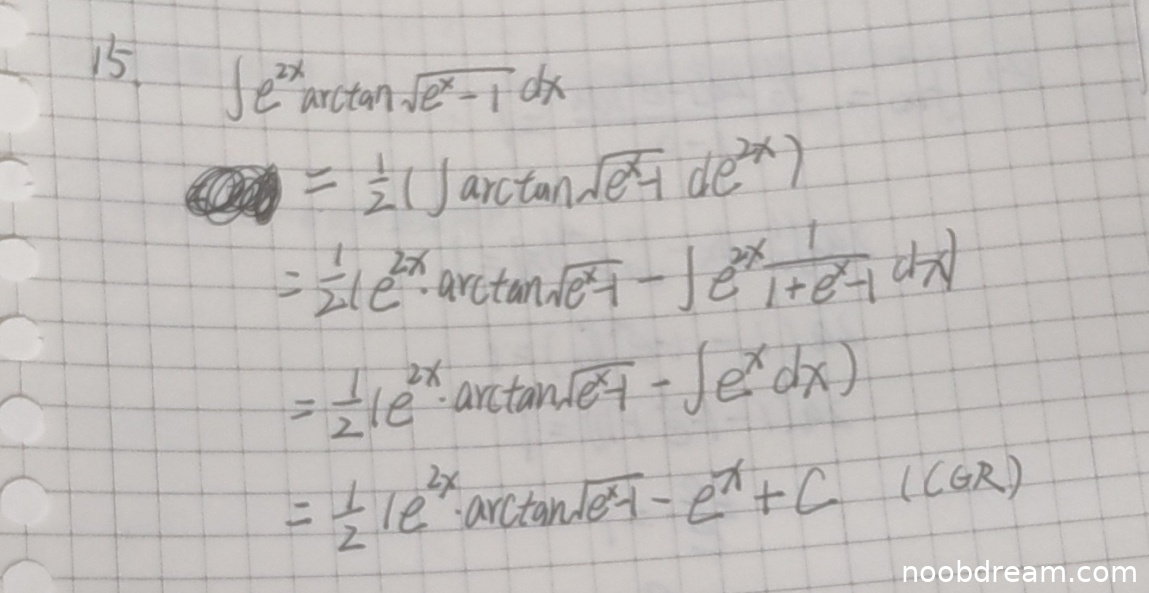 15.
∫e^{2x} arctan√(e^x-1) dx
= 1/2 (∫ arctan√(e^x-1) de^{2x})
= 1/2 (e^{2x}·arctan√(e^x-1) - ∫e^{2x} 1/(1+e^x-1) dx)
= 1/2 (e^{2x}·arctan√(e^x-1) - ∫e^x dx)
= 1/2 (e^{2x}·arctan√(e^x-1) - e^x + C (CGR)
noobdream.com